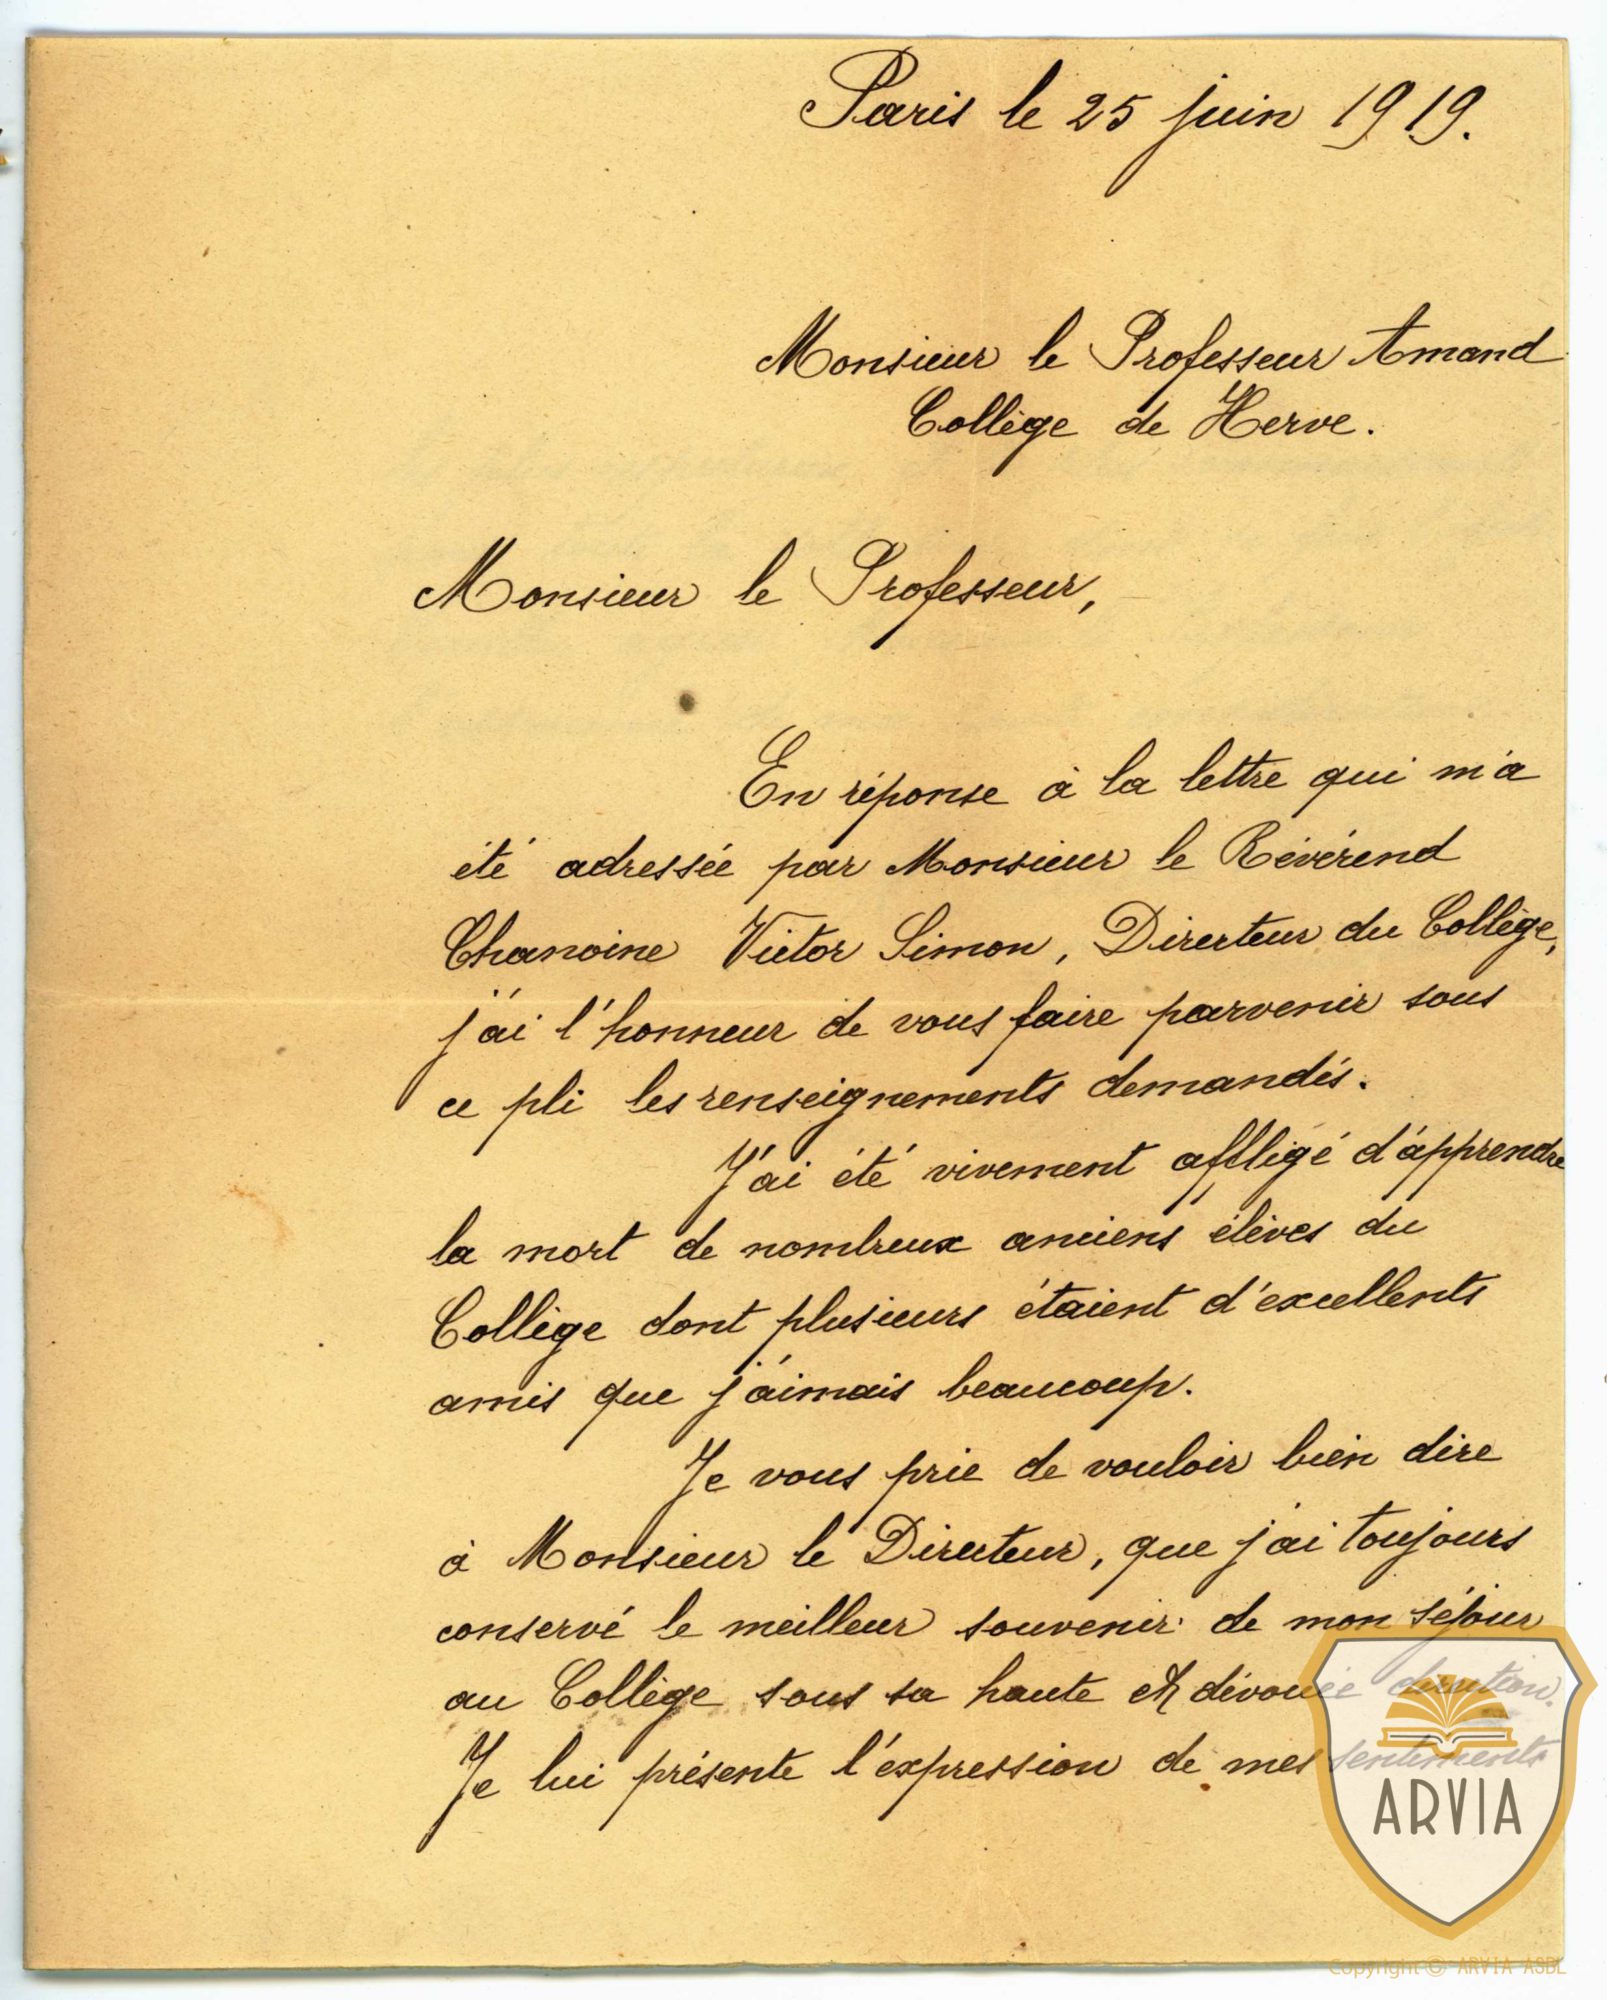 Paris le 25 juin 1919.
Monsieur le Professeur Amand
Collège de Herve.
Monsieur le Professeur,
En réponse à la lettre qui m'a
été adressée par Monsieur le Révérend
Chanoine Victor Simon, Directeur du Collège,
j'ai l'honneur de vous faire parvenir sous
ce pli les renseignements demandés.
J'ai été vivement affligé d'apprendre
la mort de nombreux anciens élèves du
Collège dont plusieurs étaient d'excellents
amis que j'aimais beaucoup.
Je vous prie de vouloir bien dire
à Monsieur le Directeur, que j'ai toujours
conservé le meilleur souvenir de mon séjour
au Collège sous sa haute et dévouée direction.
Je lui présente l'expression de mes sentiments
ARVIA
Copyright © ARVIA ASBL